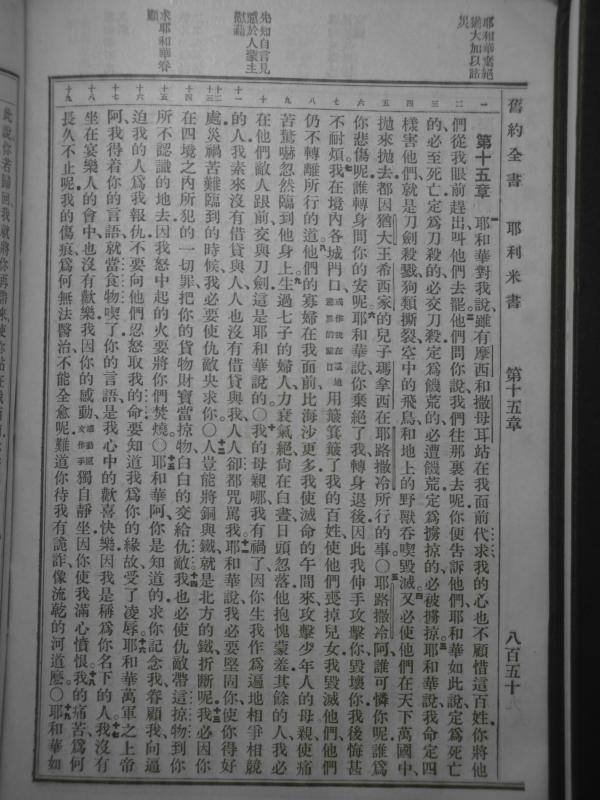 舊約全書 耶利米書 第十五章 八百五十
耶和華棄絕
猶大加以詰
災
先知自言見
惡於人蒙主
慰藉
求耶和華眷
顧
第十五章 耶和華對我說雖有摩西和撒母耳站在我面前代求我的心也不顧惜這百姓你將他
們從我眼前趕出叫他們去罷他們問你說我們往那裏去呢你便告訴他們耶和華如此說定爲死亡
的必至死亡定爲刀殺的必交刀殺定爲饑荒的必遭饑荒定爲擄掠的必被擄掠耶和華說我命定四
樣害他們就是刀劍殺戮狗類撕裂空中的飛鳥和地上的野獸吞喫毀滅又必使他們在天下萬國中
拋來拋去都因猶大王希西家的兒子瑪拿西在耶路撒冷所行的事〇耶路撒冷阿誰可憐你呢誰爲
你悲傷呢誰轉身問你的安呢耶和華說你棄絕了我轉身退後因此我伸手攻擊你毀壞你我後悔甚
不耐煩我在境內各城門口或作我在這地邊界的關口用簸箕簸了我的百姓使他們喪掉兒女我毀滅他們他們
仍不轉離所行的道他們的寡婦在我面前比海沙更多我使滅命的午間來攻擊少年人的母親使痛
苦驚嚇忽然臨到他身上生過七子的婦人力衰氣絕尙在白晝日頭忽落他抱愧蒙羞其餘的人我必
在他們敵人跟前交與刀劍這是耶和華說的〇我的母親哪我有禍了因你生我作爲遍地相爭相競
的人我素來沒有借貸與人人也沒有借貸與我人人卻都咒罵我耶和華說我必要堅固你使你得好
處災禍苦難臨到的時候我必要使仇敵央求你〇人豈能將銅與鐵就是北方的鐵折斷呢我必因你
在四境之內所犯的一切罪把你的貨物財寶當掠物白白的交給仇敵我也必使仇敵帶這掠物到你
所不認識的地去因我怒中起的火要將你們焚燒〇耶和華阿你是知道的求你記念我眷顧我向逼
迫我的人爲我報仇不要向他們忍怒取我的命要知道我爲你的緣故受了凌辱耶和華萬軍之上帝
阿我得着你的言語就當食物喫了你的言語是我心中的歡喜快樂因我是稱爲你名下的人我沒有
坐在宴樂人的會中也沒有歡樂我因你的感動感動原文作手獨自靜坐因你使我滿心憤恨我的痛苦爲何
長久不止呢我的傷痕爲何無法醫治不能全愈呢難道你待我有詭詐像流乾的河道麼〇耶和華如
此說你若歸回我就將你再帶來使你站在我面前